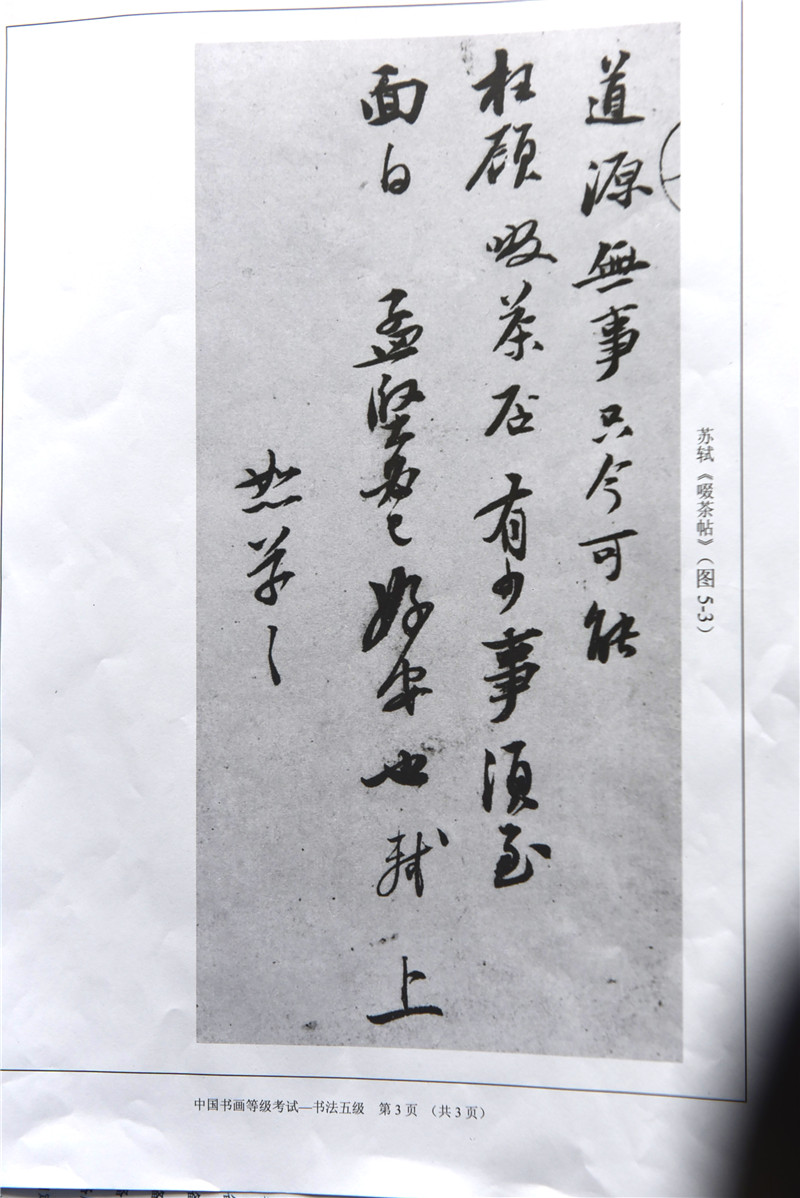 道源無事只今可能
枉顧啜茶否有少事須至
面白孟堅必已好安也軾上
恕草々
苏轼《啜茶帖》（图 5-3）
中国书画等级考试—书法五级 第 3 页 （共 3 页）